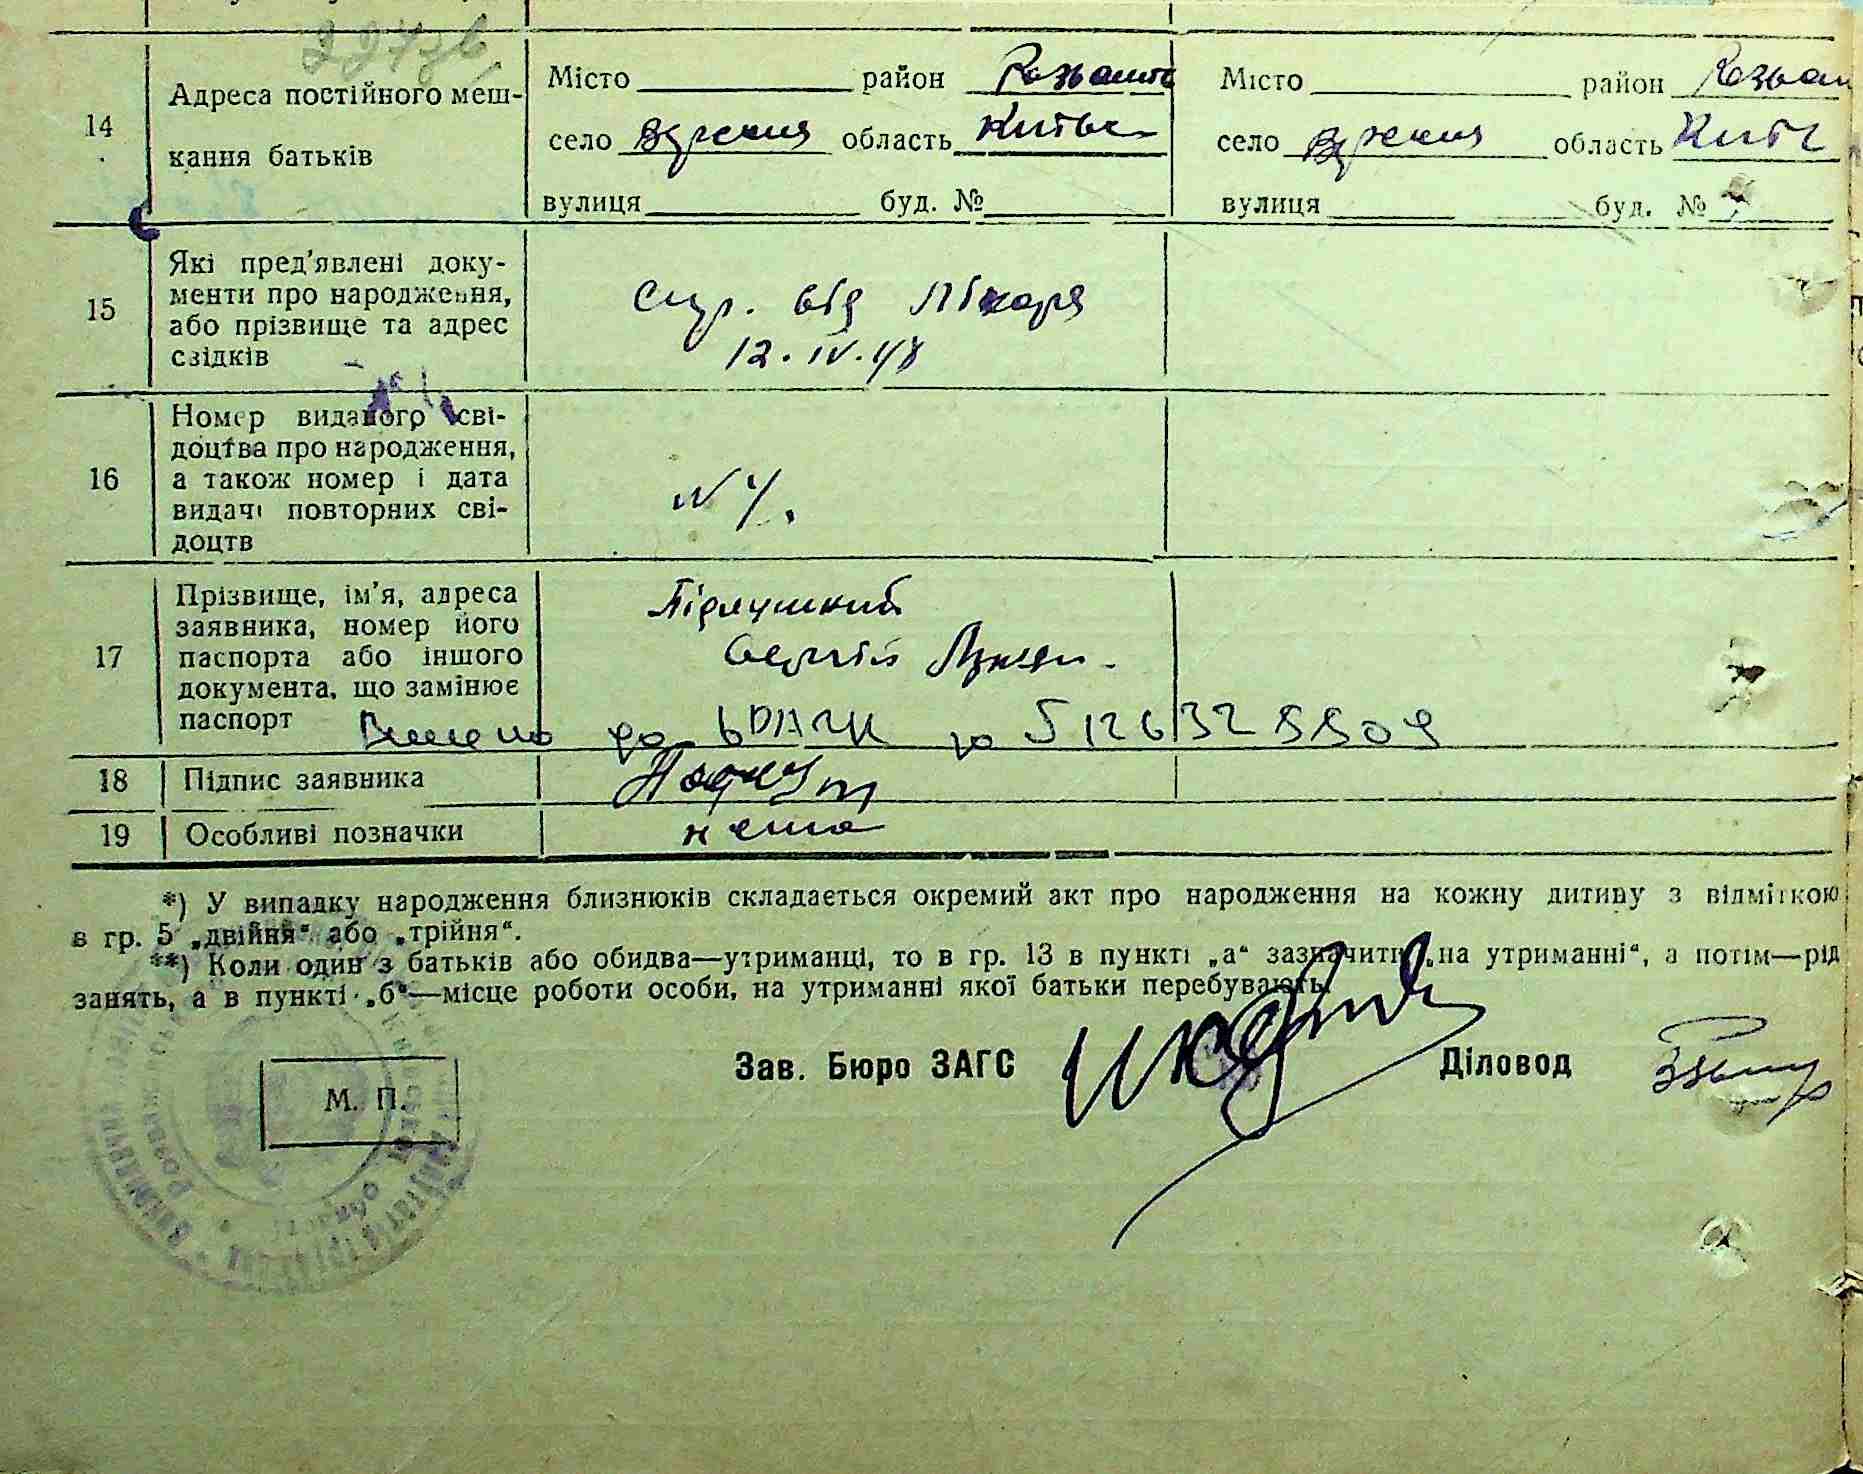 14
Адреса постійного меш-
кання батьків
Місто район Розваж
село область Київс
вулиця буд. №
Місто район Розваж
село область Київ
вулиця буд. №
15
Які пред'явлені доку-
менти про народження,
або прізвище та адрес
свідків
Спр. від лікаря
12.IV.48
16
Номер виданого сві-
доцтва про народження,
а також номер і дата
видачі повторних сві-
доцтв
N 4.
17
Прізвище, ім'я, адреса
заявника, номер його
паспорта або іншого
документа, що замінює
паспорт
Сергій
Внесено до за
18
Підпис заявника
19
Особливі позначки
нема
*) У випадку народження близнюків складається окремий акт про народження на кожну дитину з відміткою
в гр. 5 „двійня“ або „трійня“.
**) Коли один з батьків або обидва—утриманці, то в гр. 13 в пункті „а“ зазначити „на утриманні“, а потім—рід
занять, а в пункті „б“—місце роботи особи, на утриманні якої батьки перебувають.
Зав. Бюро ЗАГС Діловод
М. П.